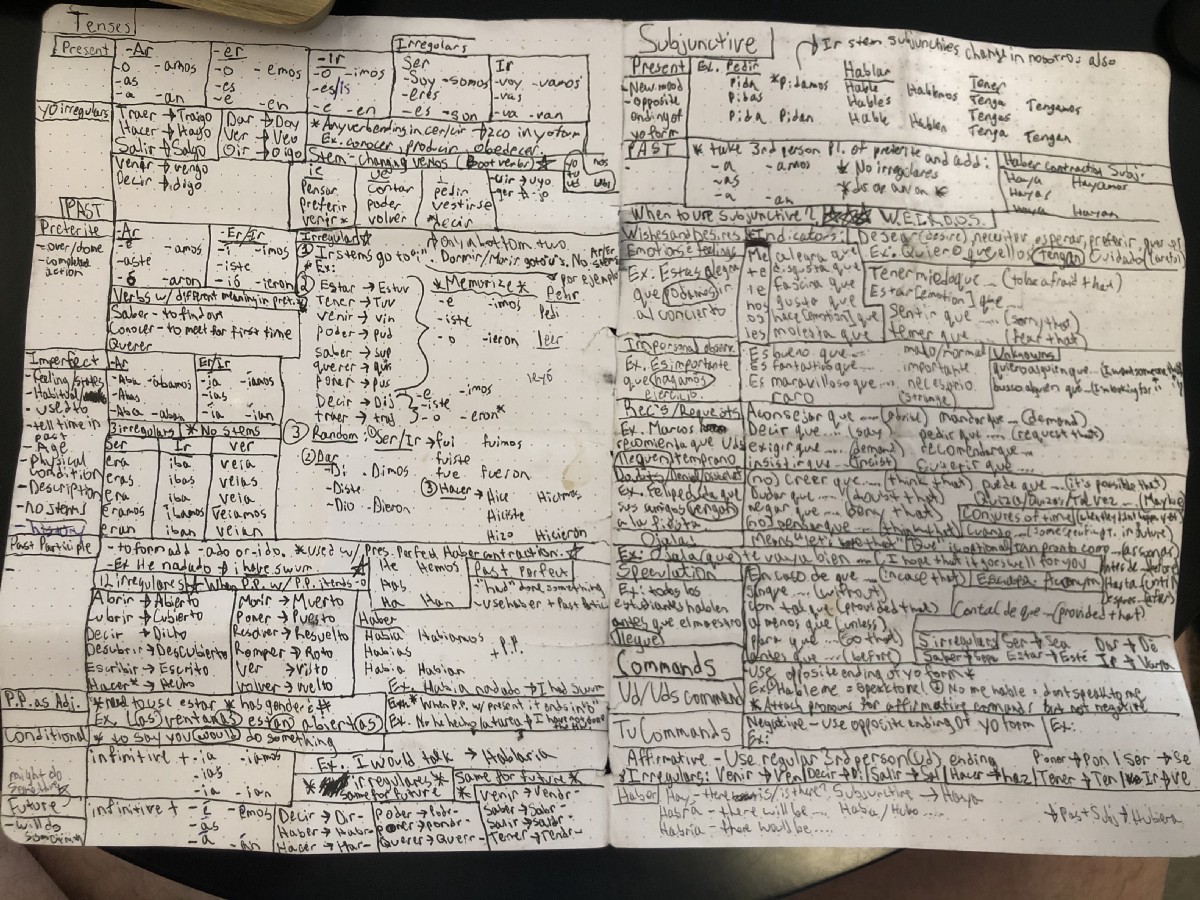 Tenses
Present
-Ar
-o -amos
-as
-a -an
-er
-o -emos
-es
-e -en
-ir
-o -imos
-es/is
-e -en
Irregulars
Ser
-Soy -somos
-eres
-es -son
Ir
-voy -vamos
-vas
-va -van
yo irregulars
Traer → Traigo
Hacer → Hago
Salir → Salgo
Venir → vengo
Decir → digo
Dar → Doy
Ver → Veo
Oir → Oigo
*Any verb ending in cer/cir → zco in yo form
Ex. conocer, producir, obedecer.
Stem-changing verbs (Boot verbs)
ie
Pensar
Preferir
venir*
ue
contar
poder
volver
i
pedir
vestirse
decir
uir → uyo
ger → jo
PAST
Preterite
-over/done
-completed
action
-Ar
-é -amos
-aste
-ó -aron
-Er/ir
-í -imos
-iste
-ió -ieron
Verbs w/ different meaning in pret.
Saber - to find out
Conocer - to meet for first time
Querer
Irregulars
① Ir stems go to "i"
* Ex:
Only in bottom two.
Dormir/Morir go to u's. No Ar/er stems
por ejemplo
Pedir
Pedi
② Estar → Estuv
Tener → Tuv
venir → vin
poder → pud
saber → sup
querer → quis
poner → pus
Decir → Dij
traer → traj
*Memorize*
-e -imos
-iste
-o -ieron
leer
leyó
-e -imos
-iste
-o -eron*
③ Random: ① Ser/Ir → fui fuimos
fuiste
fue fueron
② Dar
-Di . Dimos
-Diste
-Dio -Dieron
③ Hacer → Hice Hicimos
Hiciste
Hizo Hicieron
Imperfect
-feeling/states
-Habitual
-used to
-tell time in
past
-Age
-Physical
condition
-Description
-No stems
-Ar
-Aba -ábamos
-Abas
-Aba -aban
Er/Ir
-ia -iamos
-ias
-ia -ian
3 irregulars *No stems
Ser
era
eras
era
eramos
eran
Ir
iba
ibas
iba
ibamos
iban
ver
veia
veias
veia
Veiamos
veian
Past Participle
-to form add -ado or -ido. *used w/ Pres. Perfect Haber contraction.
-Ex He nadado → i have swum
He Hemos
Has
Ha Han
Past Perfect
"had" done something
-use haber + Past Partic
12 irregulars
when P.P. w/ P.P. it ends -o
Abrir → Abierto
Cubrir → Cubierto
Decir → Dicho
Descubrir → Descubierto
Escribir → Escrito
Hacer* → Hecho
Morir → Muerto
Poner → Puesto
Resolver → Resuelto
Romper → Roto
Ver → Visto
volver → vuelto
Haber
Habia Habiamos
Habias
Habia Habian
+ P.P.
Ex. Habia nadado → I had swum
P.P. as Adj.
*need to use estar *has gender &#
Ex. (las) ventan(as) están abiert(as)
*When P.P. w/ present it ends in "o"
Conditional
* to say you would do something
infinitive + -ia -iamos
-ias
-ia -ian
Ex. I would talk → Hablaria
* irregulares *
same for future
Same for future *
might do
something
Future
-will do
something
infinitive + -é -emos
-as
-á -án
Decir → Dir-
Haber → Habr-
Hacer → Har-
Poder → Podr-
Poner → pondr-
Querer → Querr-
Venir → Vendr-
Saber → Sabr-
Salir → saldr-
Tener → Tendr-
Subjunctive
Ir stem subjunctives change in nosotros also
Present
-New mood
-opposite
ending of
yo form
Ex. Pedir
Pida *Pidamos
Pidas
Pida Pidan
Hablar
Hable Hablemos
Hables
Hable Hablen
Tener
Tenga Tengamos
Tengas
Tenga Tengan
PAST
* take 3rd person Pl. of preterite and add:
-a -amos
-as
-a -an
* No irregulares
Haber Contraction Subj.
Haya Hayamos
Hayas
Haya Hayan
When to use subjunctive? W.E.I.R.D.O.S.
Wishes and Desires
Indicators: Desear (desire), necesitar, esperar, preferir, querer
Ex: Quiero que ellos (tengan) cuidado (careful)
Emotions & feelings
Ex: Estas alegra
que podamos ir
al concierto
Me
te
le
nos
os
les
alegra que
disgusta que
fascina que
gusta que
hace [emotion] que
molesta que
Tener miedo que (to be afraid that)
Estar [emotion] que
Sentir que .... (sorry that)
temer que ... (fear that)
Impersonal observ.
Ex. Es importante
que hagamos
ejercicio.
Es bueno que....
Es fantastico que...
Es maravilloso que...
raro
malo/normal
importante
necesario
(strange)
Unknowns
quiero alguien que...
busco alguien que...
Rec's/Requests
Ex. Marcos
recomienta que Uds
lleguen temprano
Aconsejar que .... (advise)
Decir que .... (say)
exigir que ... (demand)
insistir que .... (insist)
mandar que .... (demand)
pedir que .... (request that)
recomendar que...
sugerir que ....
Doubts/Denial/
Ex. Felipe duda que
sus amigos vengan
a la fiesta
(no) creer que .... (think that)
Dudar que .... (doubt that)
negar que .... (deny that)
no pensar que .... (think that)
puede que .... (it's possible that)
Quizá/Quizas/Tal vez .... (Maybe)
Conjures of time
cuando....
tan pronto como ... (as soon as)
Antes de (before)
Hasta (until)
Despues (after)
Ojala!
"Que" is optional
Ex: Ojala (que) te vaya bien ... (I hope that it goes well for you)
Speculation
Ex: todos los
estudiantes hablen
antes que el maestro
llegue
En caso de que .... (in case that)
Sin que .... (without)
con tal que (provided that)
a menos que (unless)
para que .... (so that)
antes que .... (before)
Escapa Acronym
Con tal de que ... (provided that)
5 irregulars Ser → Sea Dar → Dé
Saber → Sepa Estar → Esté Ir → Vaya
Commands
Ud/Uds Command
-Use opposite ending of yo form*
Ex: Hableme = speak to me! No me hable = don't speak to me
*Attach pronouns for affirmative commands but not negative
Tu Commands
Negative - Use opposite ending of yo form
Ex:
Ex:
Affirmative - Use regular 3rd person (Ud.) ending Poner → Pon | Ser → Sé
Irregulars: Venir → Ven | Decir → Di | Salir → Sal | Hacer → haz | Tener → Ten | Ir → Ve
Haber
Hay - there is/is there? Subjunctive → Haya
Habra - there will be .... Habia/Hubo .....
Habria - there would be.....
→ Past Subj → Hubiera